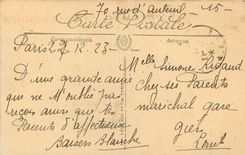 70 rue d'auteuil 15-
Carte Postale
Correspondance Adresse
Paris 27.12.23-
D'une grande amie
qui ne m'oublie pas
reçois aussi que tes
Parents d'affectueux
Baisers Blanche
Melle Simone
chez ses Parents
marichal gare
gien
Loiret